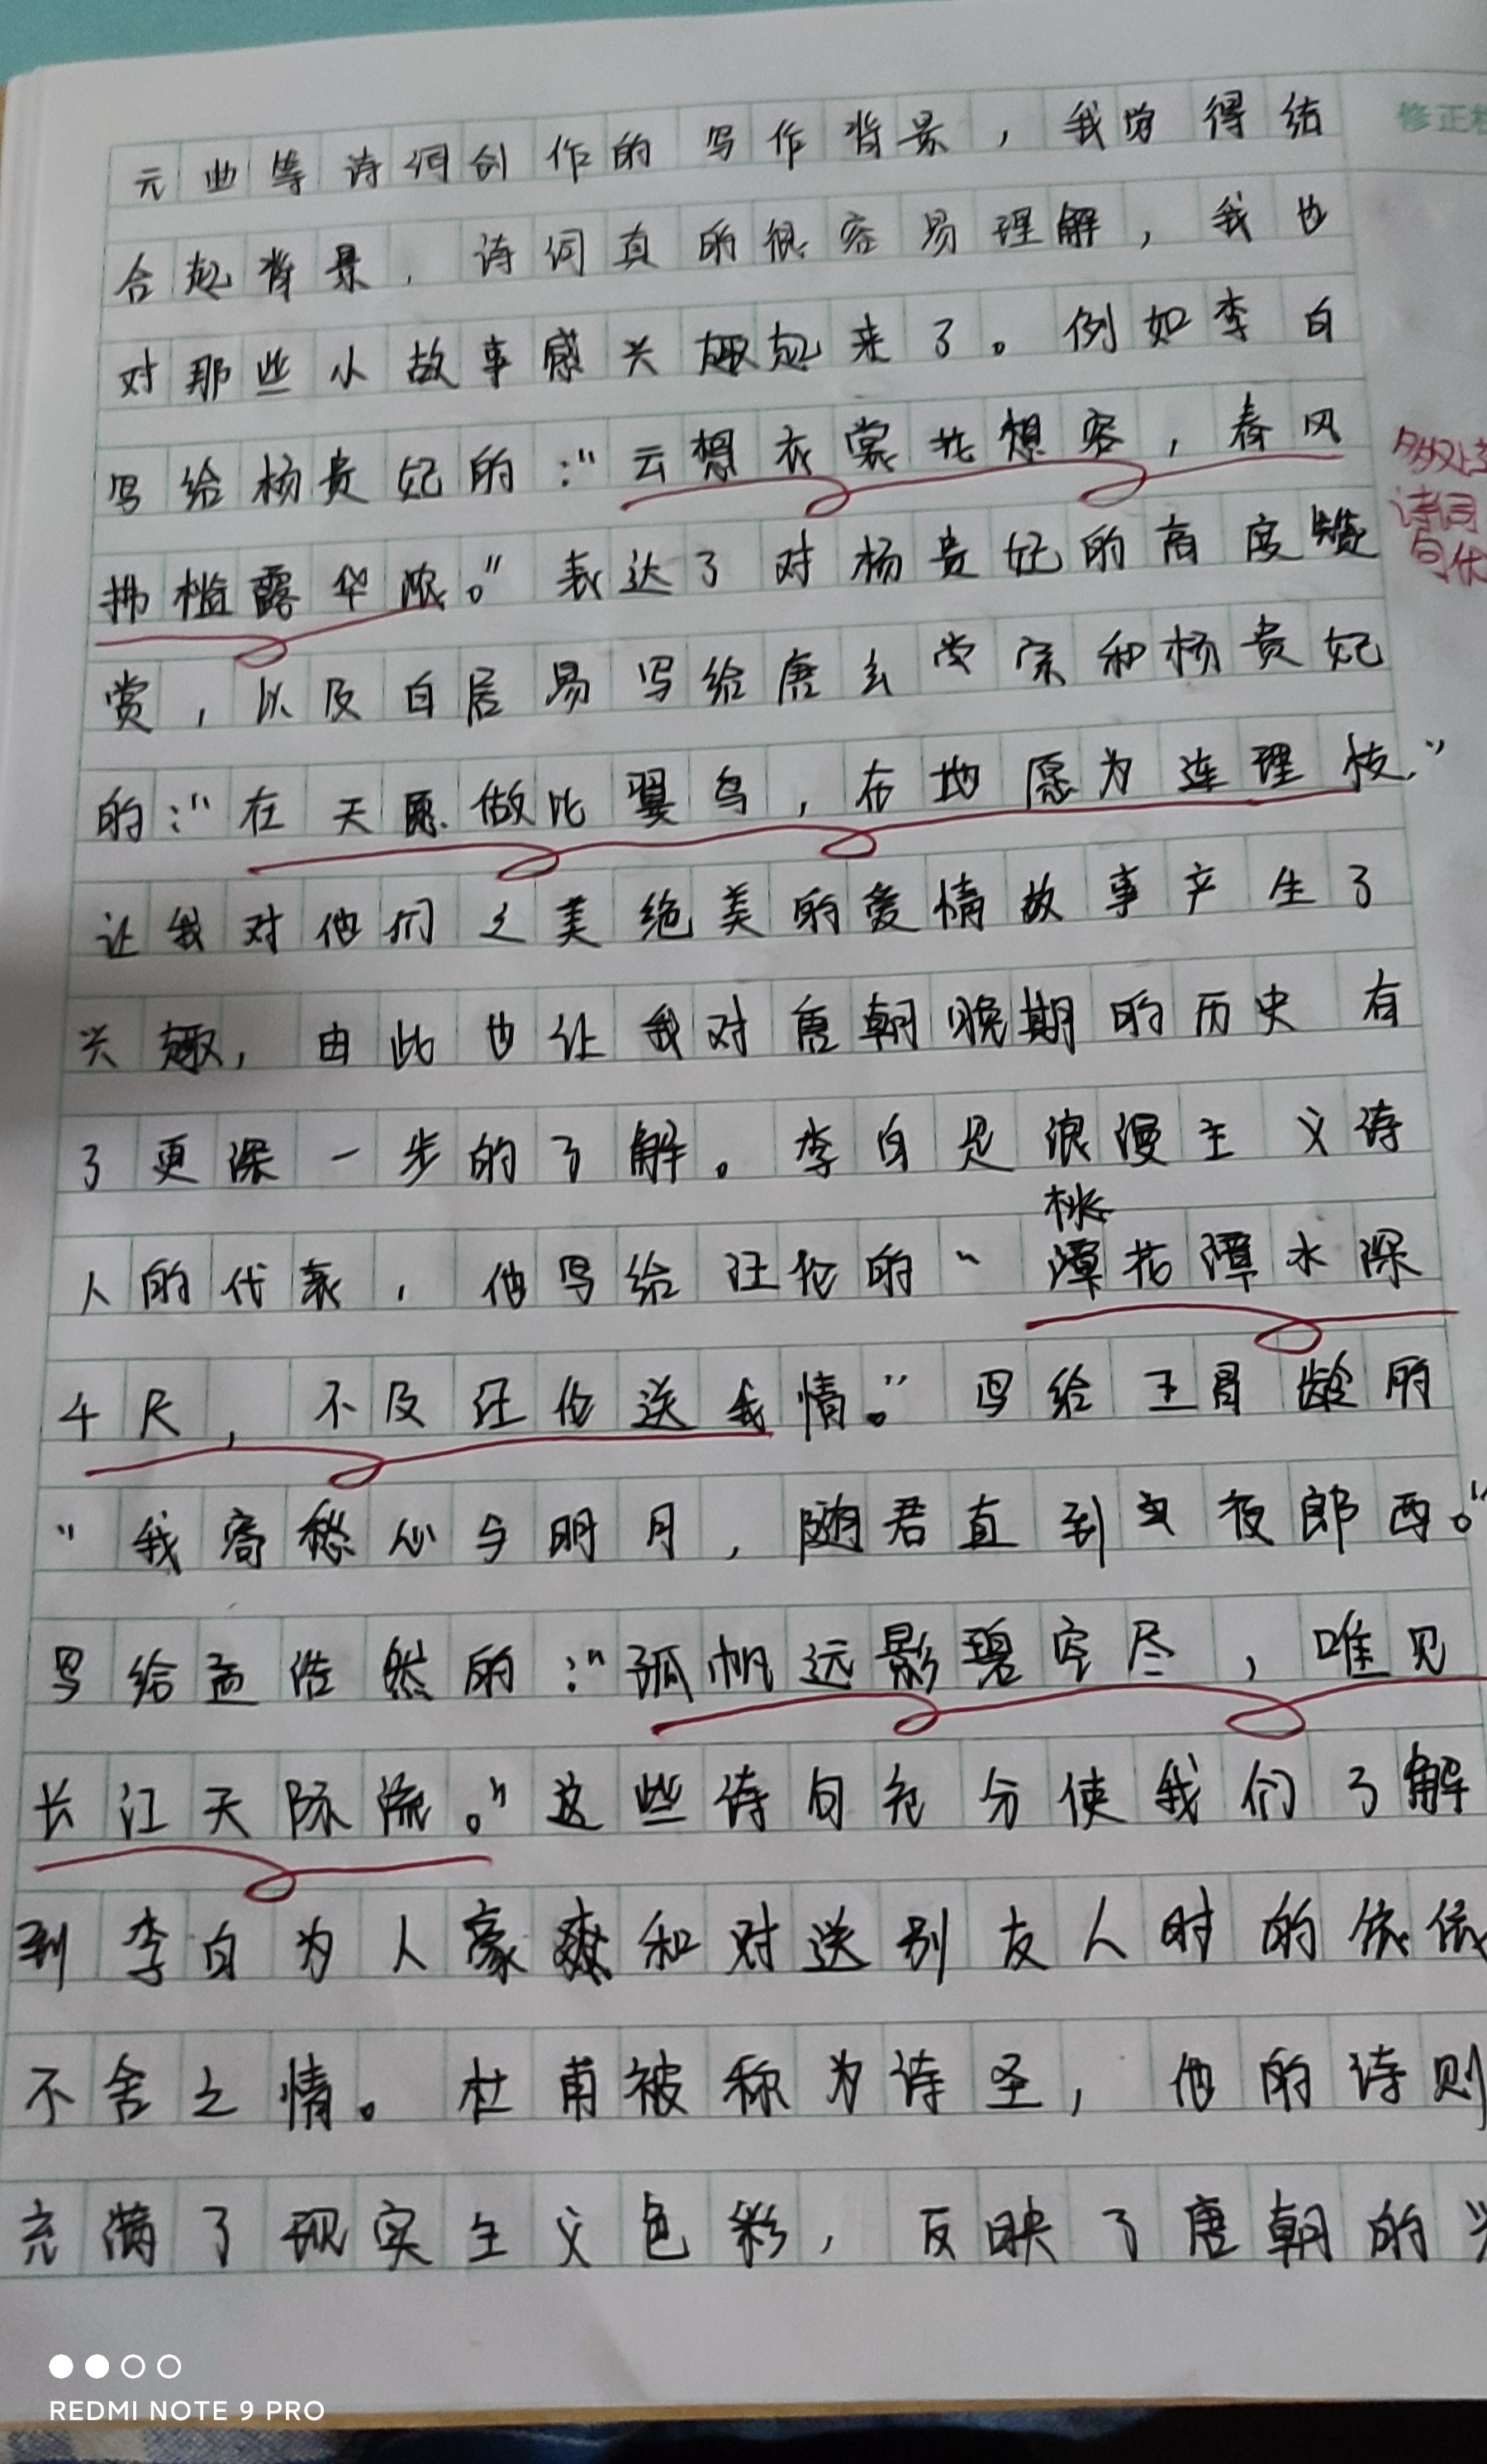 修正
元曲等诗词创作的写作背景，我觉得结
合起背景，诗词真的很容易理解，我也
对那些小故事感兴趣起来了。例如李白
写给杨贵妃的："云想衣裳花想容，春风
拂槛露华浓。"表达了对杨贵妃的高度赞
赏，以及白居易写给唐玄宗和杨贵妃
的："在天愿做比翼鸟，在地愿为连理枝."
让我对他们之美绝美的爱情故事产生了
兴趣，由此也让我对唐朝晚期的历史有
了更深一步的了解。李白是浪漫主义诗
桃
人的代表，他写给汪伦的"潭花潭水深
千尺，不及汪伦送我情。"写给王昌龄的
"我寄愁心与明月，随君直到夜郎西。"
写给孟浩然的："孤帆远影碧空尽，唯见
长江天际流。"这些诗句充分使我们了解
到李白为人豪爽和对送别友人时的依依
不舍之情。杜甫被称为诗圣，他的诗则
充满了现实主义色彩，反映了唐朝的兴
诗词
REDMI NOTE 9 PRO